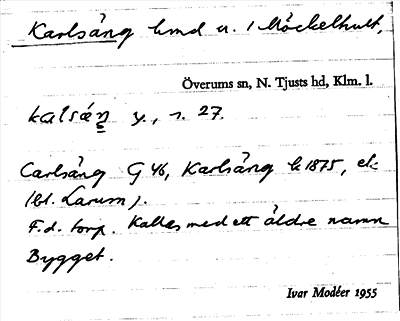 Karlsäng hmd u. 1 Möckelhult,
Överums sn, N. Tjusts hd, Klm. l.
kalsáŋ y., r. 27.
Carlsäng G 46, Karlsäng k 1875, ek
(bl. Larum).
F.d. torp. Kallas med ett äldre namn
Bygget.
Ivar Modéer 1955